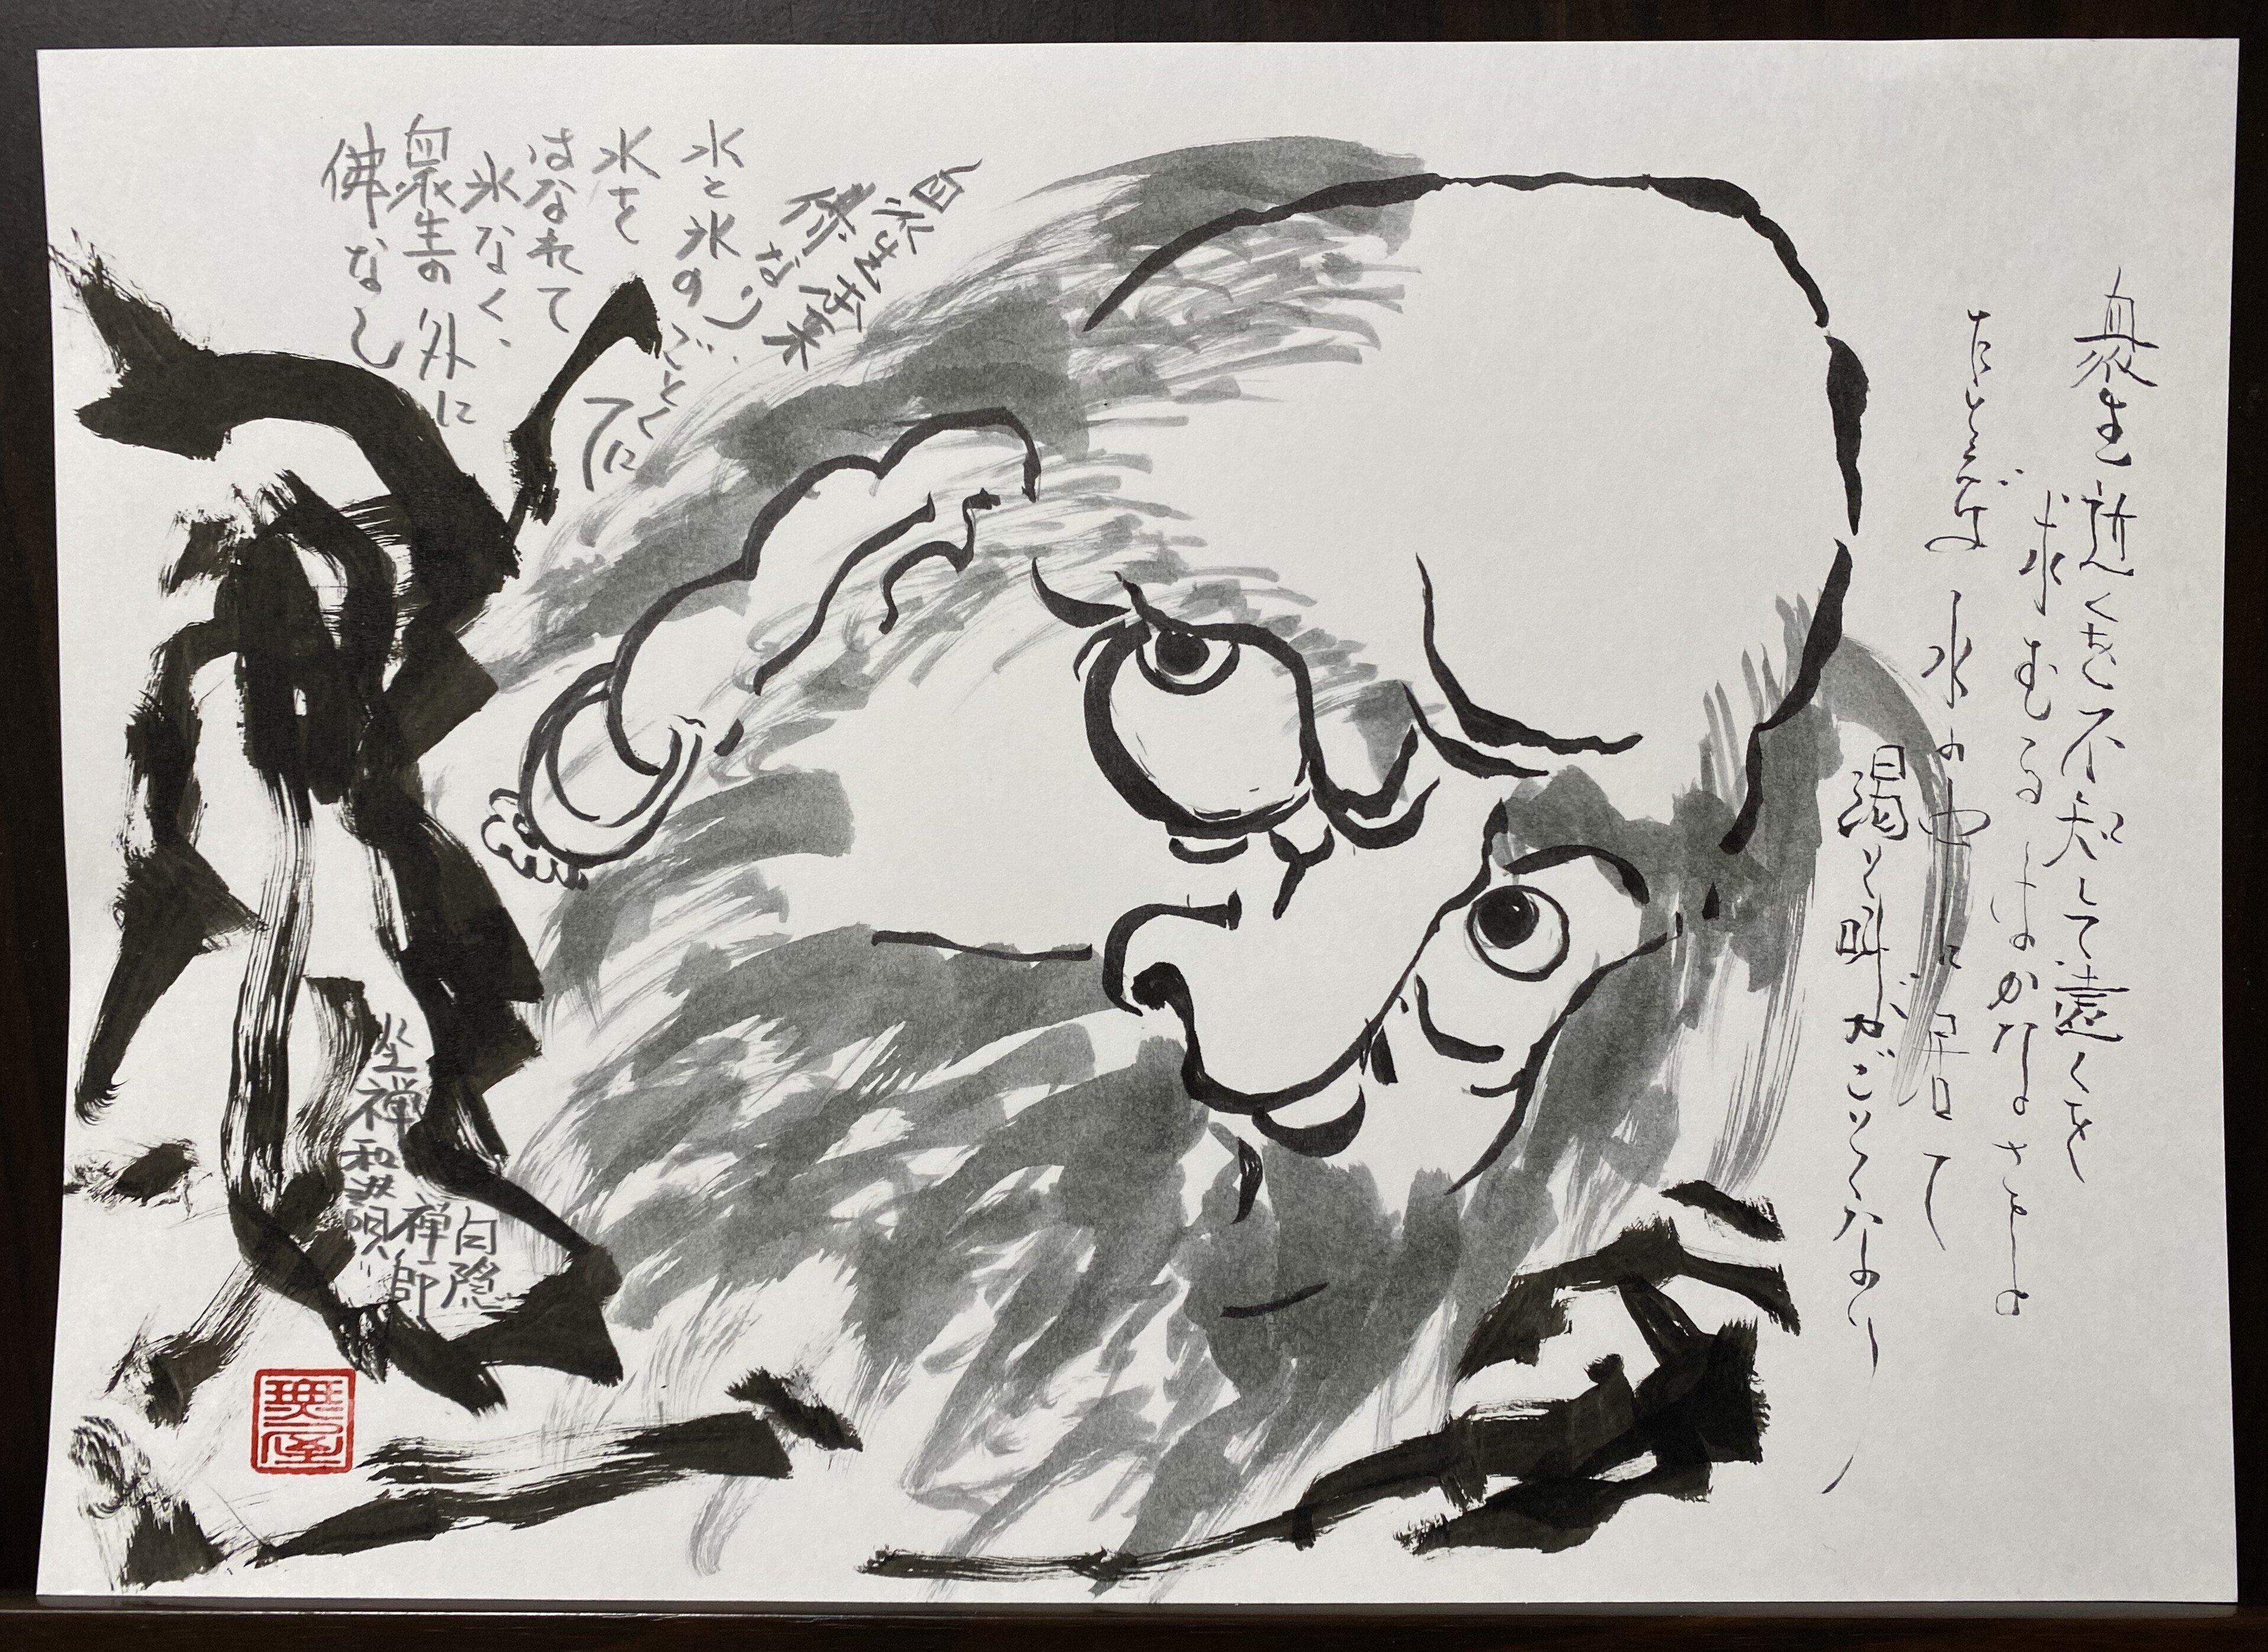 衆生近くを不知して遠くを
求むるはかなさよ
たとえば水の中に居て
渇と叫がごとくなり
衆生本来
佛なり
水と氷のごとく
にて
水を
はなれて
氷なく、
衆生の外に
佛なし
白隠
禅師
坐禅和讃唄